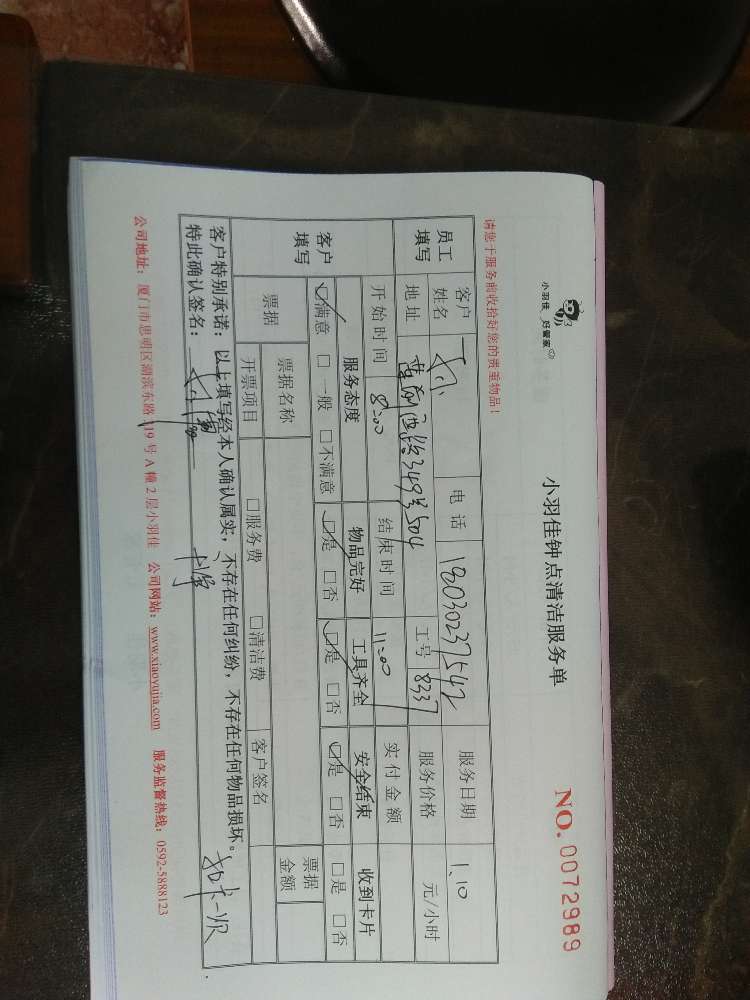 小羽佳 好管家
小羽佳钟点清洁服务单
NO. 0072989
请您于服务前收拾好您的贵重物品！
员工填写 客户姓名 电话 18030237542 服务日期 1.10
地址 莲前西路349号504 工号 8237 服务价格 元/小时
开始时间 8:00 结束时间 11:00 实付金额
客户填写 服务态度 物品完好 工具齐全 安全结束 收到卡片
☑满意 □一般 □不满意 ☑是 □否 ☑是 □否 ☑是 □否 □是 □否
票据 票据名称 票据金额
开票项目 □服务费 □清洁费 客户签名
客户特别承诺：以上填写经本人确认属实，不存在任何纠纷，不存在任何物品损坏。
特此确认签名：
公司地址：厦门市思明区湖滨东路319号A幢2层小羽佳 公司网站：www.xiaoyujia.com 服务监督热线：0592-5888123